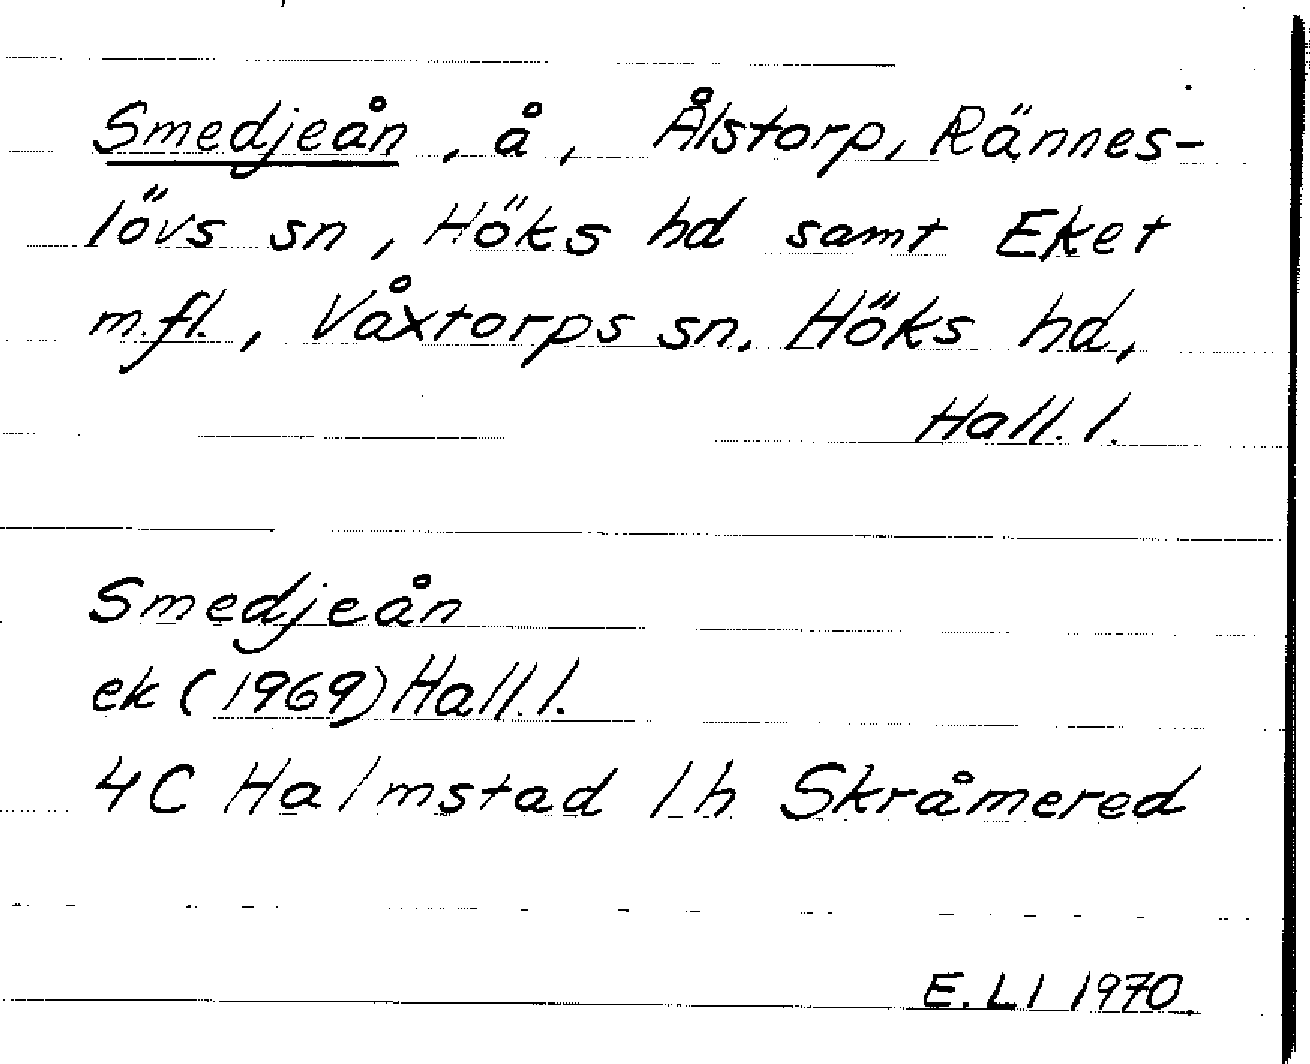 Smedjeån, å, Ålstorp, Rännes-
lövs sn, Höks hd samt Eket
m.fl., Våxtorps sn, Höks hd,
Hall. l.
Smedjeån
ek (1969) Hall. l.
4C Halmstad 1h Skråmered
E. Ll 1970.